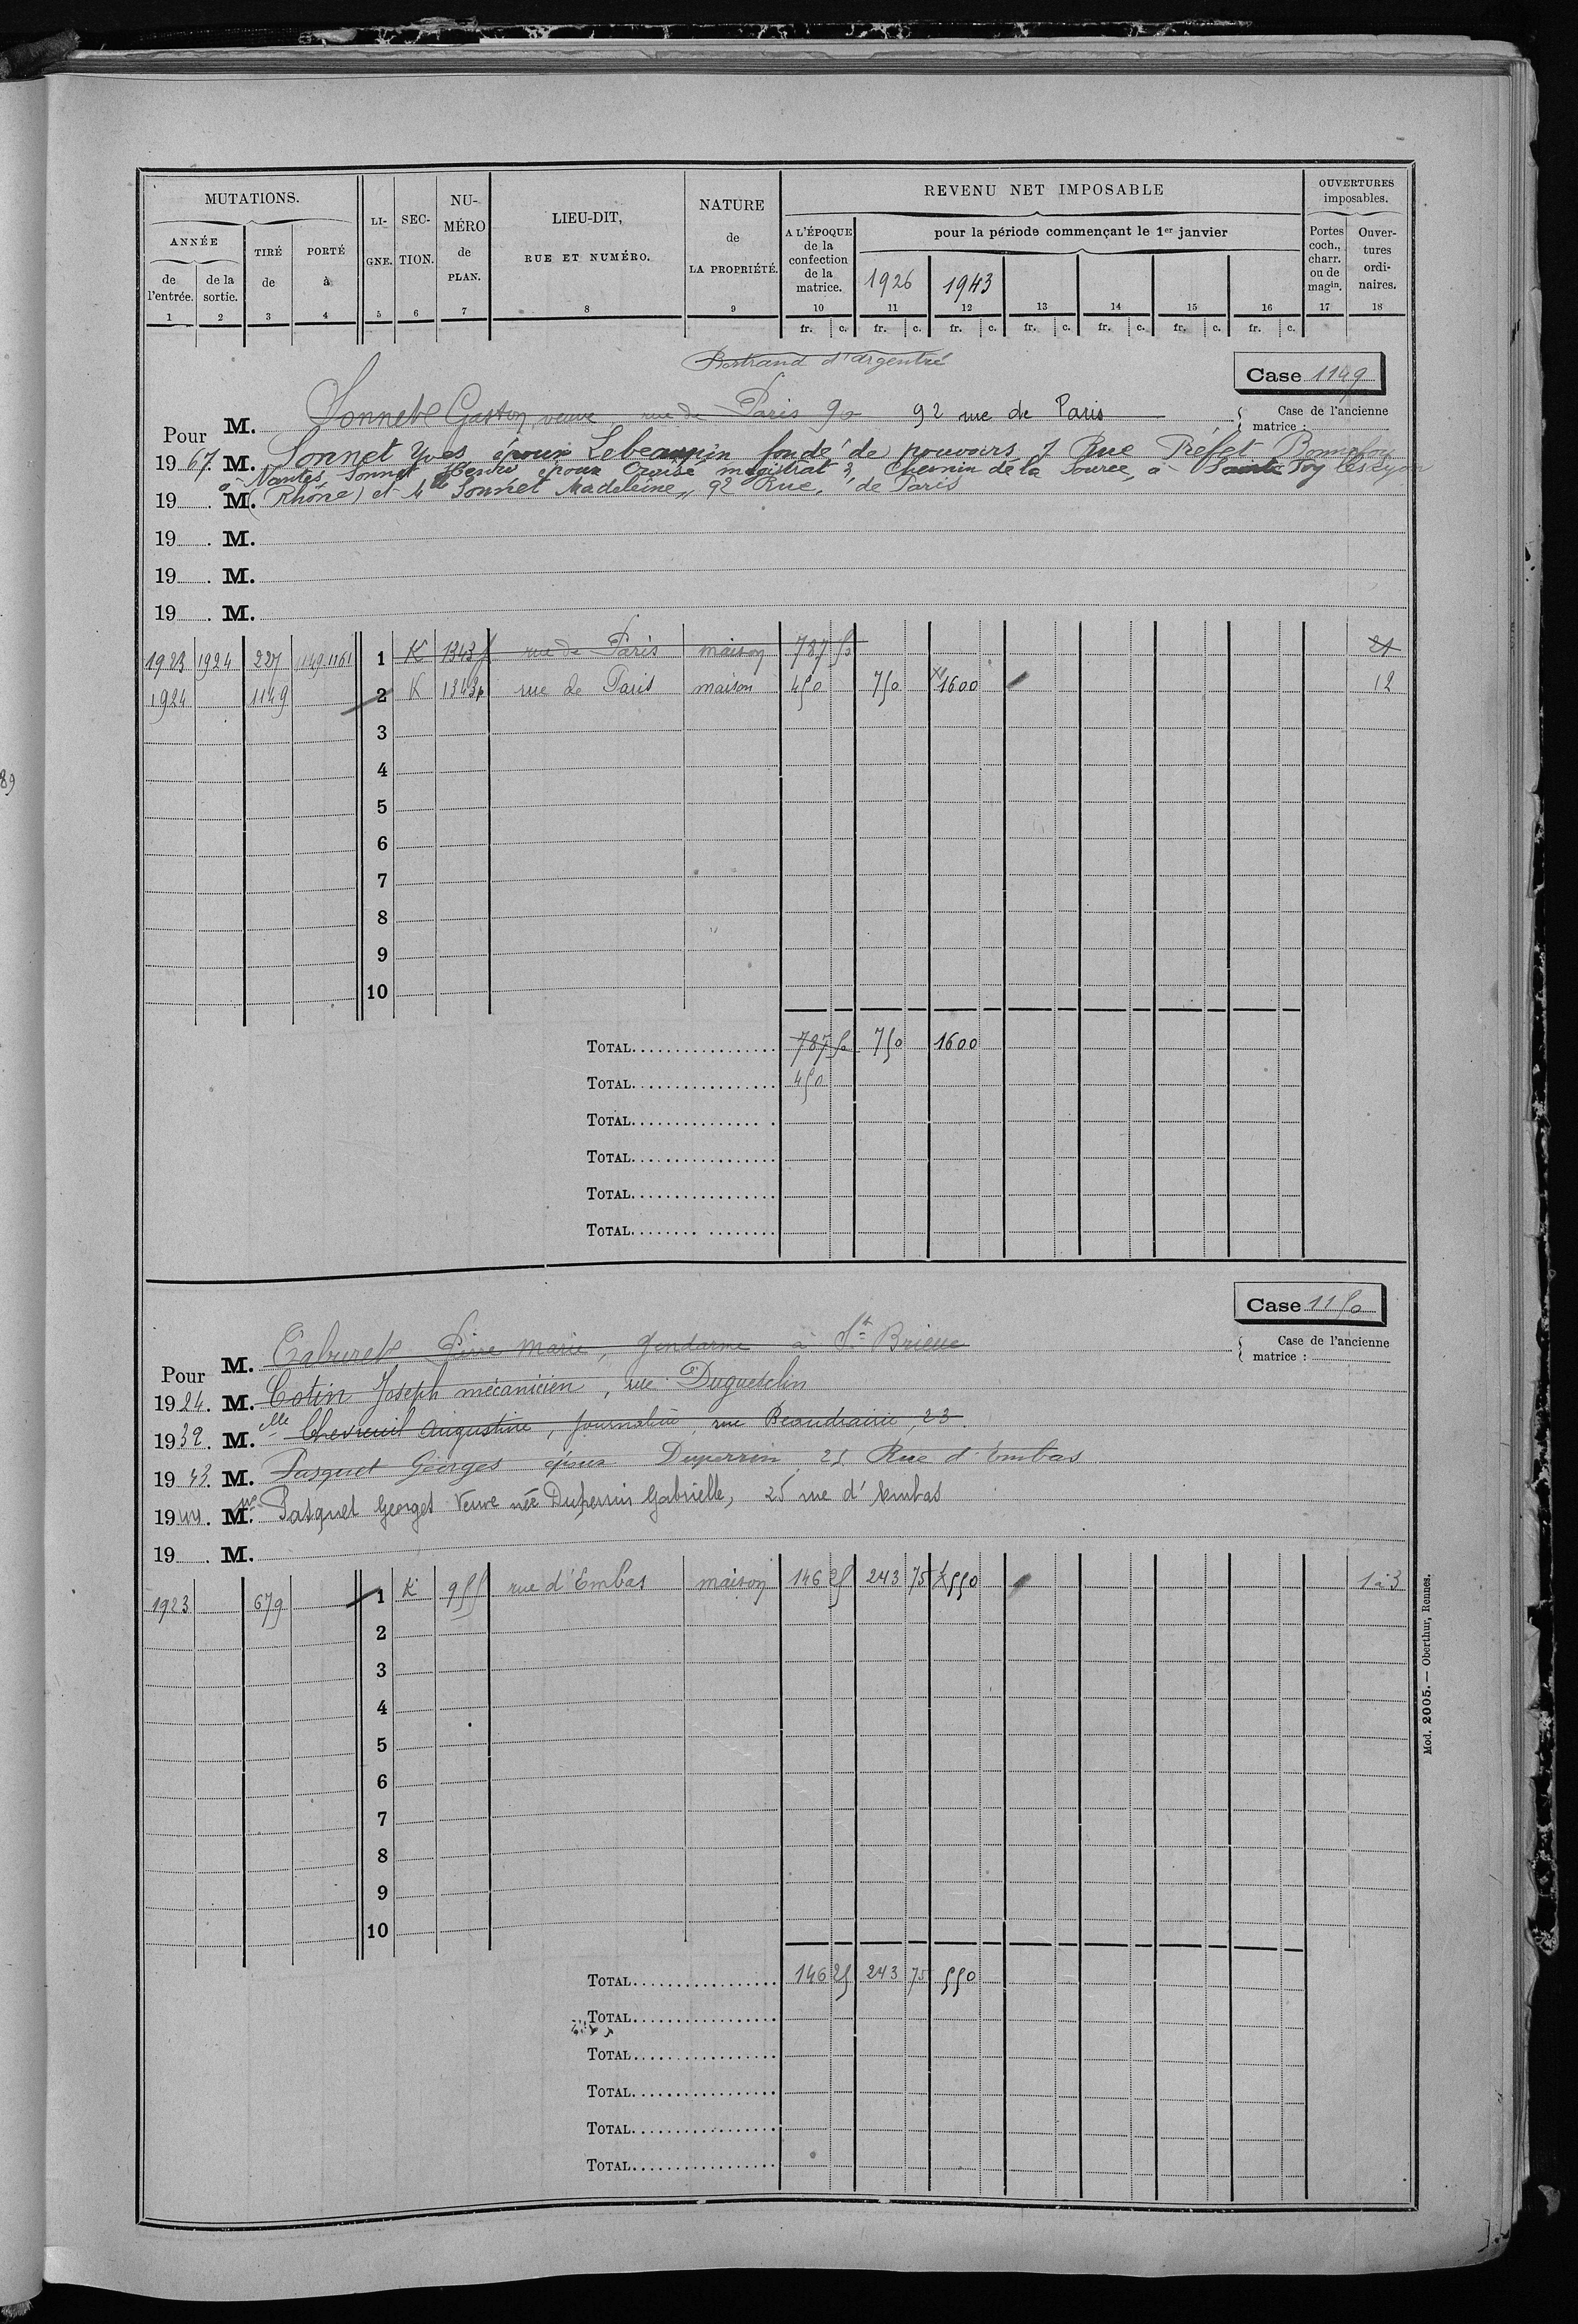 MUTATIONS.
ANNÉE
de l'entrée.
de la sortie.
TIRÉ de
PORTÉ à
LI-GNE.
SEC-TION.
NU-MÉRO de PLAN.
LIEU-DIT, RUE ET NUMÉRO.
NATURE de LA PROPRIÉTÉ.
REVENU NET IMPOSABLE
A L'ÉPOQUE de la confection de la matrice.
pour la période commençant le 1er janvier
1926 1943
OUVERTURES imposables.
Portes coch., charr. ou de magin.
Ouver-tures ordi-naires.
1 2 3 4 5 6 7 8 9 10 11 12 13 14 15 16 17 18
fr. c. fr. c. fr. c. fr. c. fr. c. fr. c. fr. c.
Bertrand d'argentré
Case 1149
Pour M. Sonnet Gaston veuve rue de Paris 92 rue de Paris
Case de l'ancienne matrice :
1967. M. Sonnet Yves époux Lebeaupin fondé de pouvoirs 7 Rue Préfet Bonnefoy
à Nantes, Sonnet époux magistrat 2 Chemin de la Source, à Sainte Foy les Lyon
19 . M. (Rhône) et Mlle Sonnet Madeleine, 92 Rue de Paris
19 . M.
19 . M.
19 . M.
1923 1924 227 1149 1161 1 K 1343p rue de Paris maison 787 50 21
1924 1149 2 K 1343p rue de Paris maison 450 750 1600 12
3
4
5
6
7
8
9
10
TOTAL 787 50 750 1600
TOTAL 450
TOTAL
TOTAL
TOTAL
TOTAL
Case 1150
Pour M. Taburet Pierre Marie, gendarme à St Brieuc
Case de l'ancienne matrice :
1924. M. Cotin Joseph mécanicien, rue Duguesclin
1932. M.elle Chevreuil Augustine, journalière, rue Beaudrairie, 23
1943. M. Pasquet Georges époux Duperrin, 25 Rue d'Embas
1944. M.me Pasquet Georges Veuve née Duperrin Gabrielle, 25 rue d'Embas
19 . M.
1923 679 1 K 955 rue d'Embas maison 146 25 243 75 550 1 à 3
2
3
4
5
6
7
8
9
10
TOTAL 146 25 243 75 550
TOTAL
TOTAL
TOTAL
TOTAL
TOTAL
Mod. 2005. — Oberthur, Rennes.
89